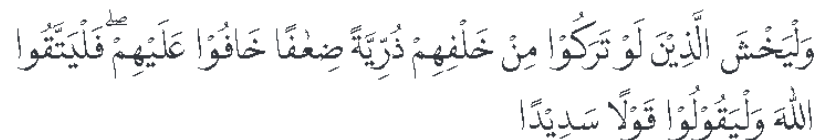 وَلْيَخْشَ الَّذِيْنَ لَوْ تَرَكُوْا مِنْ خَلْفِهِمْ ذُرِّيَّةً ضِعٰفًا خَافُوْا عَلَيْهِمْۖ فَلْيَتَّقُوا
اللّٰهَ وَلْيَقُوْلُوْا قَوْلًا سَدِيْدًا